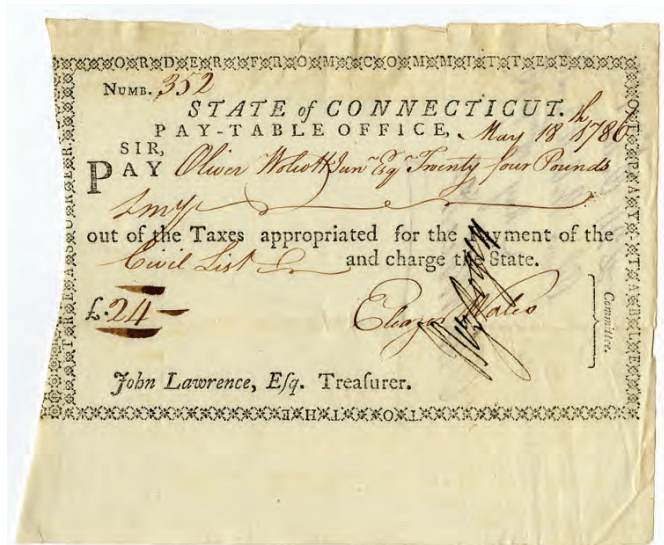 ORDER FROM COMMITTEE
OF PAY-TABLE
TO THE
TREASURER
NUMB. 352
STATE of CONNECTICUT.
PAY-TABLE OFFICE, May 18th 1786
SIR,
PAY Oliver Wolcott Junr Esqr Twenty four Pounds
out of the Taxes appropriated for the Payment of the
Civil List and charge the State.
£.24
Eleazer Wales
Committee.
John Lawrence, Eſq. Treaſurer.